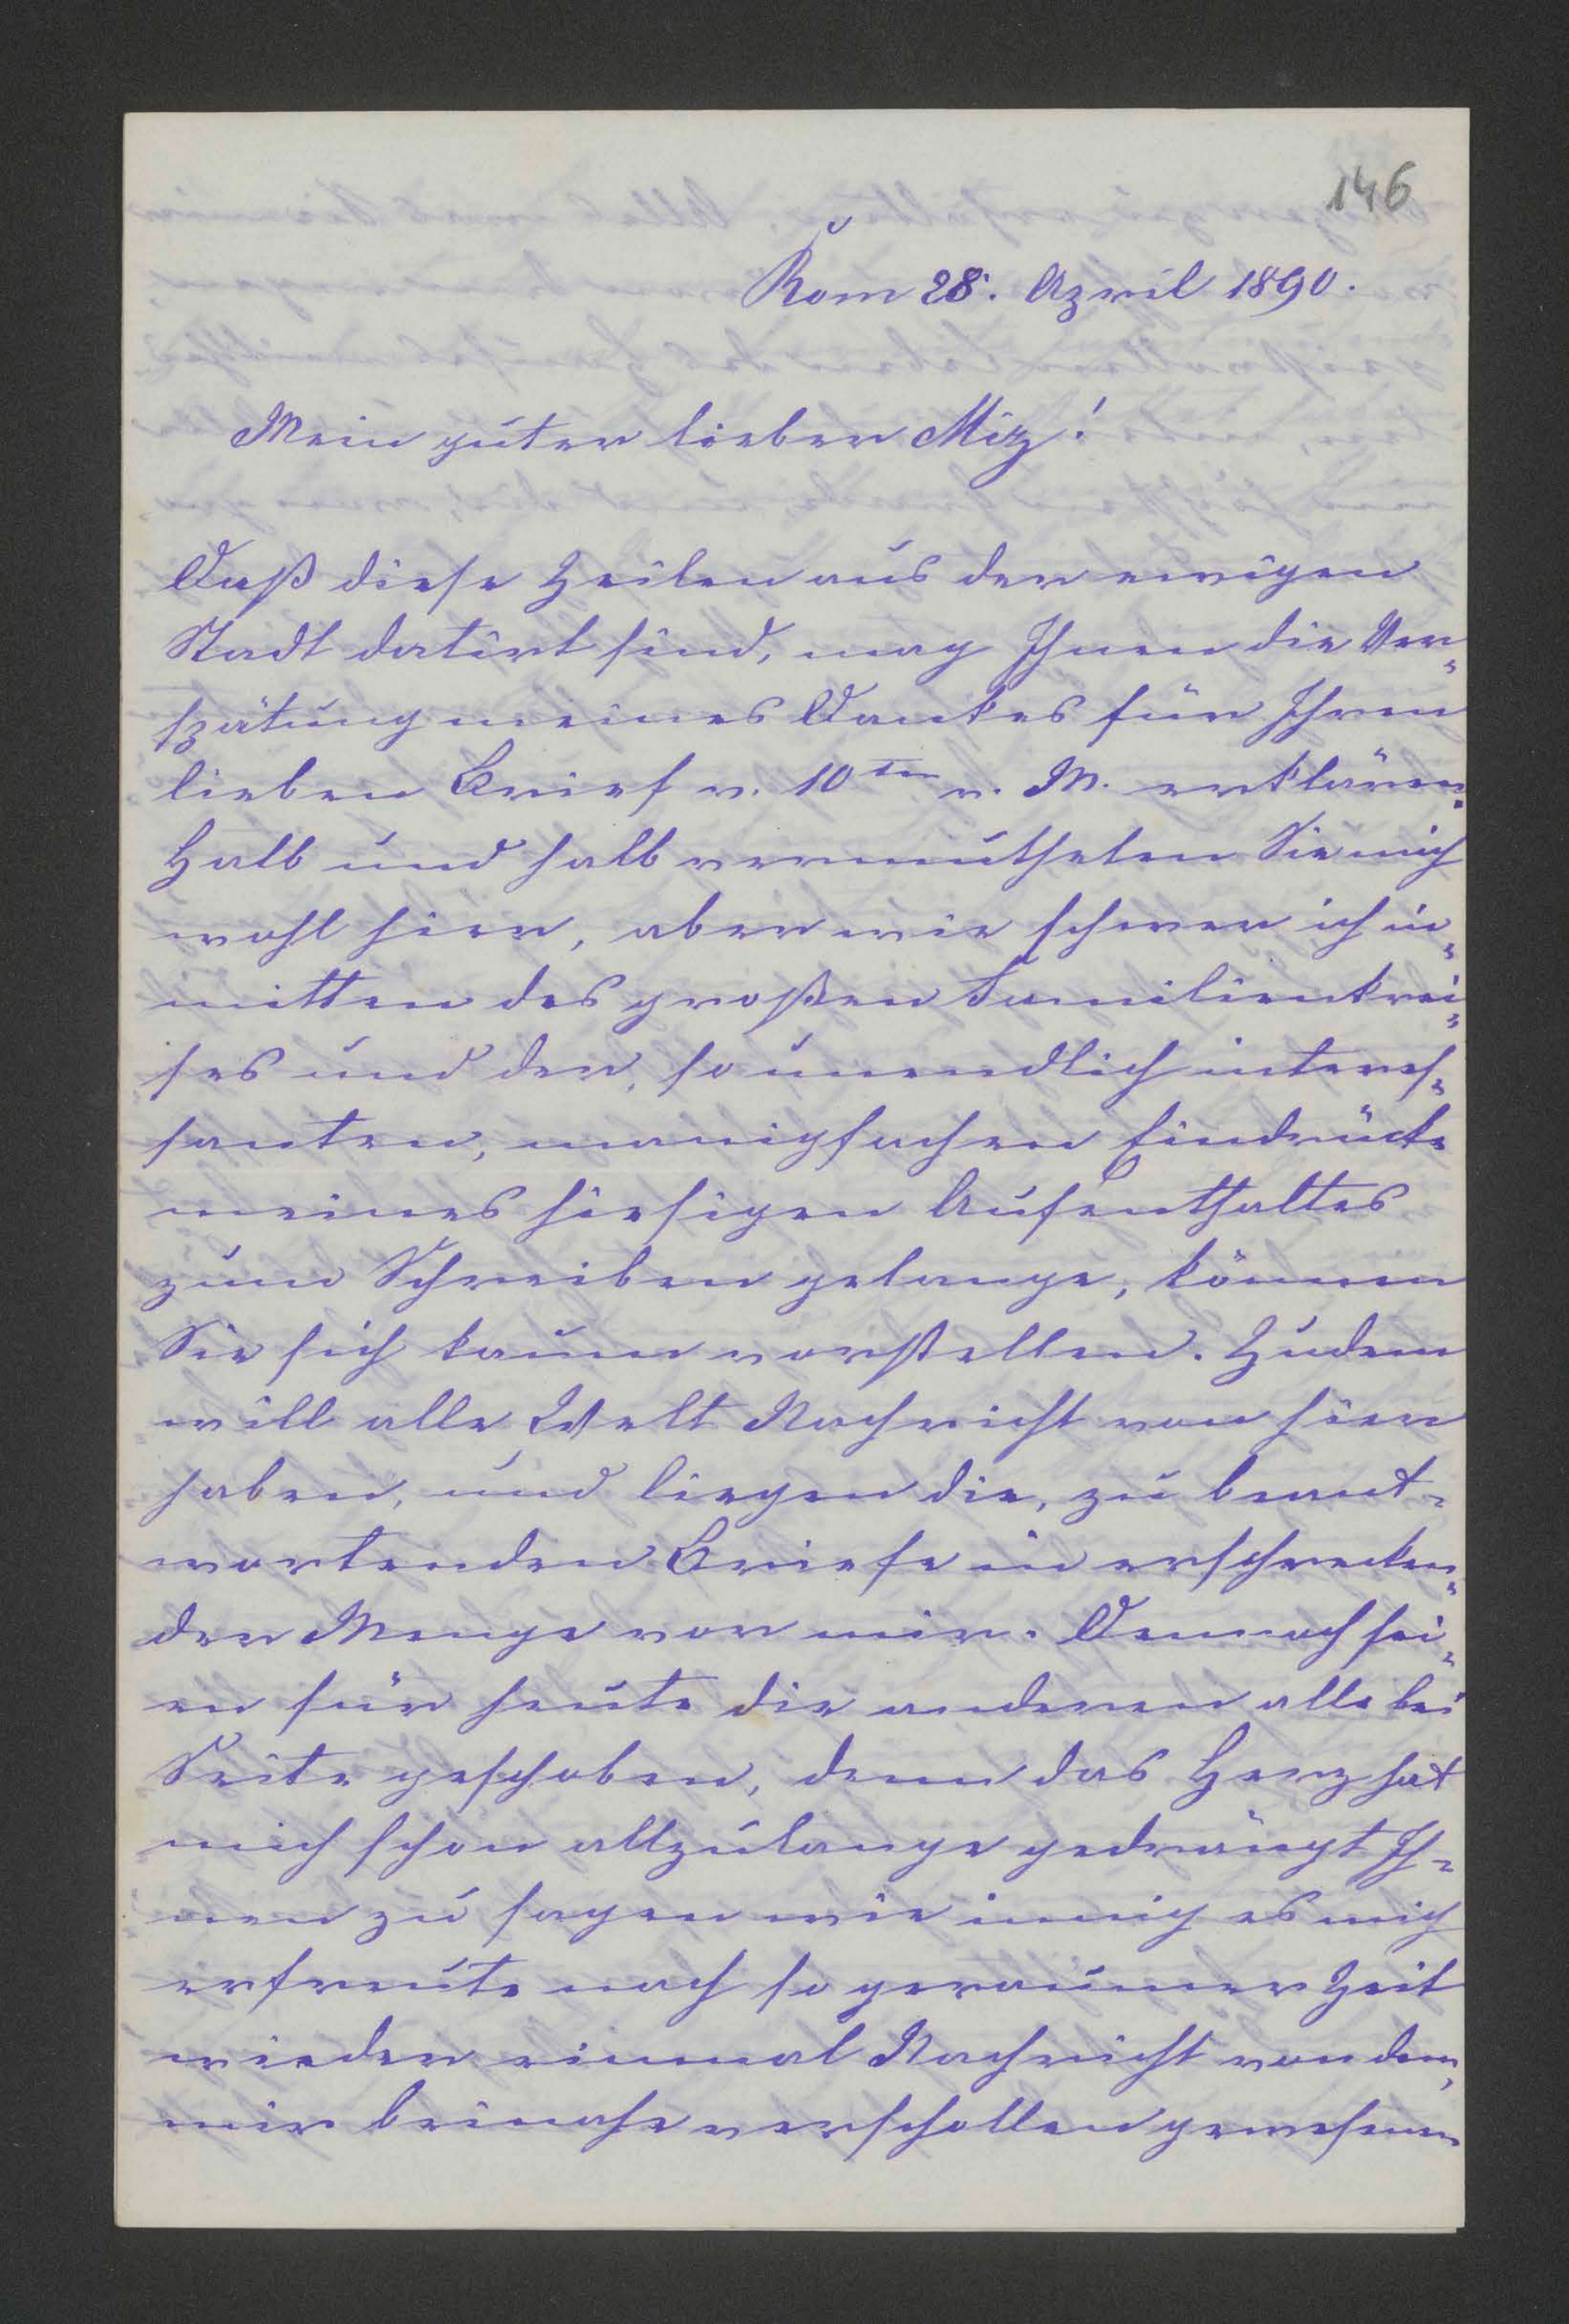 146
Rom 28. April 1890.
Mein guter lieber Miz!
Daß diese Zeilen aus der ewigen
Stadt datirt sind, mag Ihnen die Ver„
spätung meines Dankes für Ihren
lieben Brief v. 10ten v. M. erklären.
Halb und halb vermutheten Sie mich
wohl hier, aber wie schwer ich in„
mitten des großen Familienkrei„
ses und der, so unendlich interes„
santen, manigfachen Eindrücke
meines hiesigen Aufenthaltes
zum Schreiben gelange, können
Sie sich kaum vorstellen. Zudem
will alle Welt Nachricht von hier
haben, und liegen die, zu beant„
wortenden Briefe in erschrecken„
der Menge vor mir. Dennoch sei„
en für heute die anderen alle bei
Seite geschoben, denn das Herz hat
mich schon allzulange gedrängt Ih„
nen zu sagen wie innig es mich
erfreute nach so geraumer Zeit
wieder einmal Nachricht von dem,
mir beinahe verschollen gewesenen